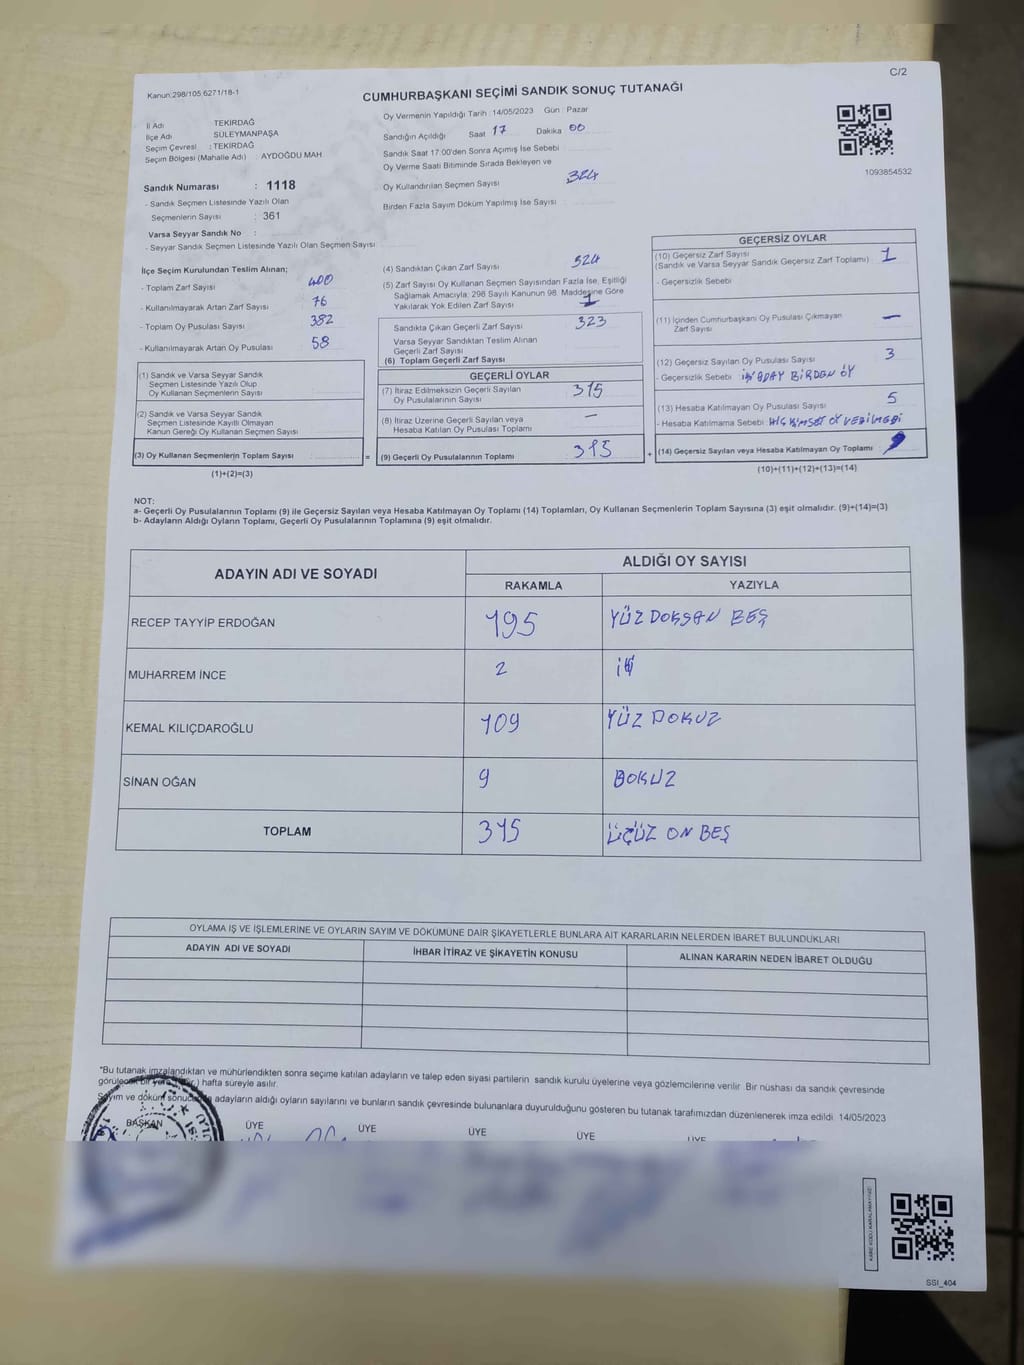 C/2
Kanun:298/105,6271/18-1
CUMHURBAŞKANI SEÇİMİ SANDIK SONUÇ TUTANAĞI
İl Adı TEKİRDAĞ
İlçe Adı SÜLEYMANPAŞA
Seçim Çevresi : TEKİRDAĞ
Seçim Bölgesi (Mahalle Adı) : AYDOĞDU MAH.
Sandık Numarası : 1118
- Sandık Seçmen Listesinde Yazılı Olan
Seçmenlerin Sayısı : 361
Varsa Seyyar Sandık No :
- Seyyar Sandık Seçmen Listesinde Yazılı Olan Seçmen Sayısı
Oy Vermenin Yapıldığı Tarih : 14/05/2023 Gün : Pazar
Sandığın Açıldığı Saat 17 Dakika 00
Sandık Saat 17.00'den Sonra Açılmış İse Sebebi
Oy Verme Saati Bitiminde Sırada Bekleyen ve
Oy Kullandırılan Seçmen Sayısı 324
Birden Fazla Sayım Döküm Yapılmış İse Sayısı
1093854532
İlçe Seçim Kurulundan Teslim Alınan;
- Toplam Zarf Sayısı 400
- Kullanılmayarak Artan Zarf Sayısı 76
- Toplam Oy Pusulası Sayısı 382
- Kullanılmayarak Artan Oy Pusulası 58
(1) Sandık ve Varsa Seyyar Sandık
Seçmen Listesinde Yazılı Olup
Oy Kullanan Seçmenlerin Sayısı
(2) Sandık ve Varsa Seyyar Sandık
Seçmen Listesinde Kayıtlı Olmayan
Kanun Gereği Oy Kullanan Seçmen Sayısı
(3) Oy Kullanan Seçmenlerin Toplam Sayısı
(1)+(2)=(3)
=
(4) Sandıktan Çıkan Zarf Sayısı 324
(5) Zarf Sayısı Oy Kullanan Seçmen Sayısından Fazla İse, Eşitliği
Sağlamak Amacıyla; 298 Sayılı Kanunun 98. Maddesine Göre
Yakılarak Yok Edilen Zarf Sayısı 1
Sandıkta Çıkan Geçerli Zarf Sayısı 323
Varsa Seyyar Sandıktan Teslim Alınan
Geçerli Zarf Sayısı
(6) Toplam Geçerli Zarf Sayısı
GEÇERLİ OYLAR
(7) İtiraz Edilmeksizin Geçerli Sayılan
Oy Pusulalarının Sayısı 315
(8) İtiraz Üzerine Geçerli Sayılan veya
Hesaba Katılan Oy Pusulası Toplamı —
(9) Geçerli Oy Pusulalarının Toplamı 315
+
GEÇERSİZ OYLAR
(10) Geçersiz Zarf Sayısı
(Sandık ve Varsa Seyyar Sandık Geçersiz Zarf Toplamı) 1
- Geçersizlik Sebebi
(11) İçinden Cumhurbaşkanı Oy Pusulası Çıkmayan
Zarf Sayısı —
(12) Geçersiz Sayılan Oy Pusulası Sayısı 3
- Geçersizlik Sebebi BİRDEN OY
(13) Hesaba Katılmayan Oy Pusulası Sayısı 5
- Hesaba Katılmama Sebebi : HİÇ KİMSEY OY VERİLMEDİ
(14) Geçersiz Sayılan veya Hesaba Katılmayan Oy Toplamı 9
(10)+(11)+(12)+(13)=(14)
NOT:
a- Geçerli Oy Pusulalarının Toplamı (9) ile Geçersiz Sayılan veya Hesaba Katılmayan Oy Toplamı (14) Toplamları, Oy Kullanan Seçmenlerin Toplam Sayısına (3) eşit olmalıdır. (9)+(14)=(3)
b- Adayların Aldığı Oyların Toplamı, Geçerli Oy Pusulalarının Toplamına (9) eşit olmalıdır.
ADAYIN ADI VE SOYADI ALDIĞI OY SAYISI
RAKAMLA YAZIYLA
RECEP TAYYİP ERDOĞAN 195 YÜZ DOKSAN BEŞ
MUHARREM İNCE 2 İKİ
KEMAL KILIÇDAROĞLU 109 YÜZ DOKUZ
SİNAN OĞAN 9 DOKUZ
TOPLAM 315 ÜÇÜZ ON BEŞ
OYLAMA İŞ VE İŞLEMLERİNE VE OYLARIN SAYIM VE DÖKÜMÜNE DAİR ŞİKAYETLERLE BUNLARA AİT KARARLARIN NELERDEN İBARET BULUNDUKLARI
ADAYIN ADI VE SOYADI İHBAR İTİRAZ VE ŞİKAYETİN KONUSU ALINAN KARARIN NEDEN İBARET OLDUĞU
*Bu tutanak imzalandıktan ve mühürlendikten sonra seçime katılan adayların ve talep eden siyasi partilerin sandık kurulu üyelerine veya gözlemcilerine verilir. Bir nüshası da sandık çevresinde
görülecek bir yere hafta süreyle asılır.
Sayım ve döküm sonucunda adayların aldığı oyların sayılarını ve bunların sandık çevresinde bulunanlara duyurulduğunu gösteren bu tutanak tarafımızdan düzenlenerek imza edildi. 14/05/2023
BAŞKAN ÜYE ÜYE ÜYE ÜYE ÜYE
KARE KODU KARALAMAYINIZ!
SSI_404